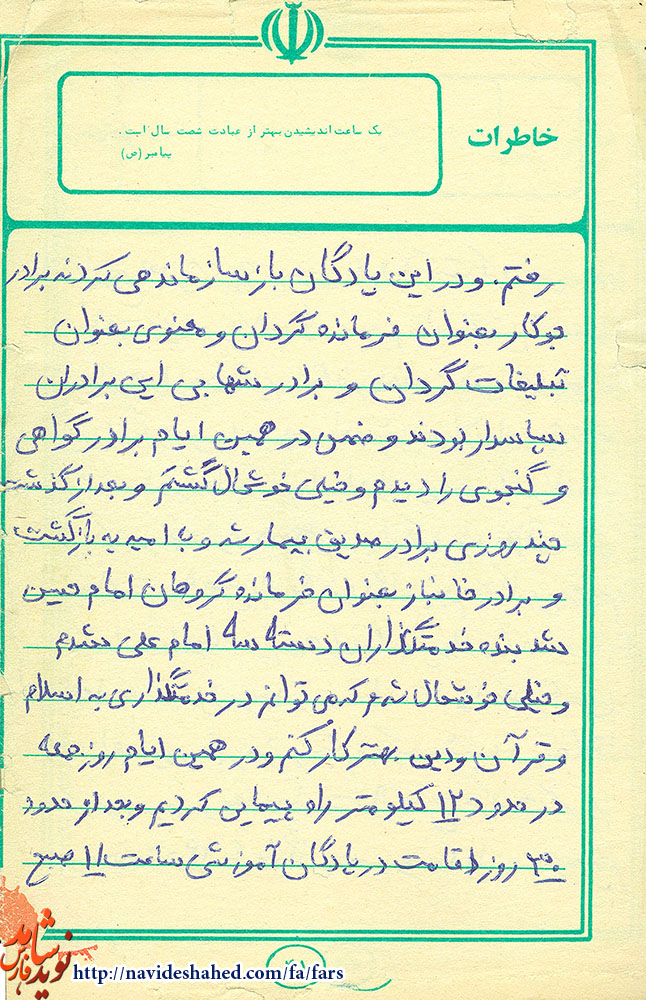 خاطرات
یک ساعت اندیشیدن بهتر از عبادت شصت سال است.
پیامبر (ص)
رفتم. و در این پادگان بازسازماندهی کردند برادر
بعنوان فرمانده گردان و معنوی بعنوان
تبلیغات گردان و برادر این برادران
سپاسدار بودند و ضمن در همین ایام برادر گواهی
و گنجوی را دیدم و خیلی خوشحال گشتم و بعد از گذشت
چند روزی برادر صدیق بیمار شد و با امید به بازگشت
و برادر بعنوان فرمانده گروهان امام حسین
شد بنده خدمتگذاران دسته سه امام علی شدم
و خیلی خوشحال شدم که می توانم در خدمتگذاری به اسلام
و قرآن و دین بهتر کار کنم و در همین ایام روز جمعه
در حدود ۱۲ کیلو متر راه پیمایی کردیم و بعد از حدود
۳۰ روز اقامت در پادگان آموزشی ساعت ۱۱ صبح
نوید شاهد فارس
http://navideshahed.com/fa/fars